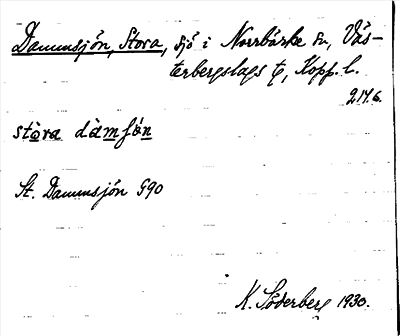 Dammsjön, Stora, sjö i Norrbärke sn, Väs-
terbergslags tg, Kopp. l.
214.6.
stòra dàmfön
St. Dammsjön G90
K. Söderberg 1930.